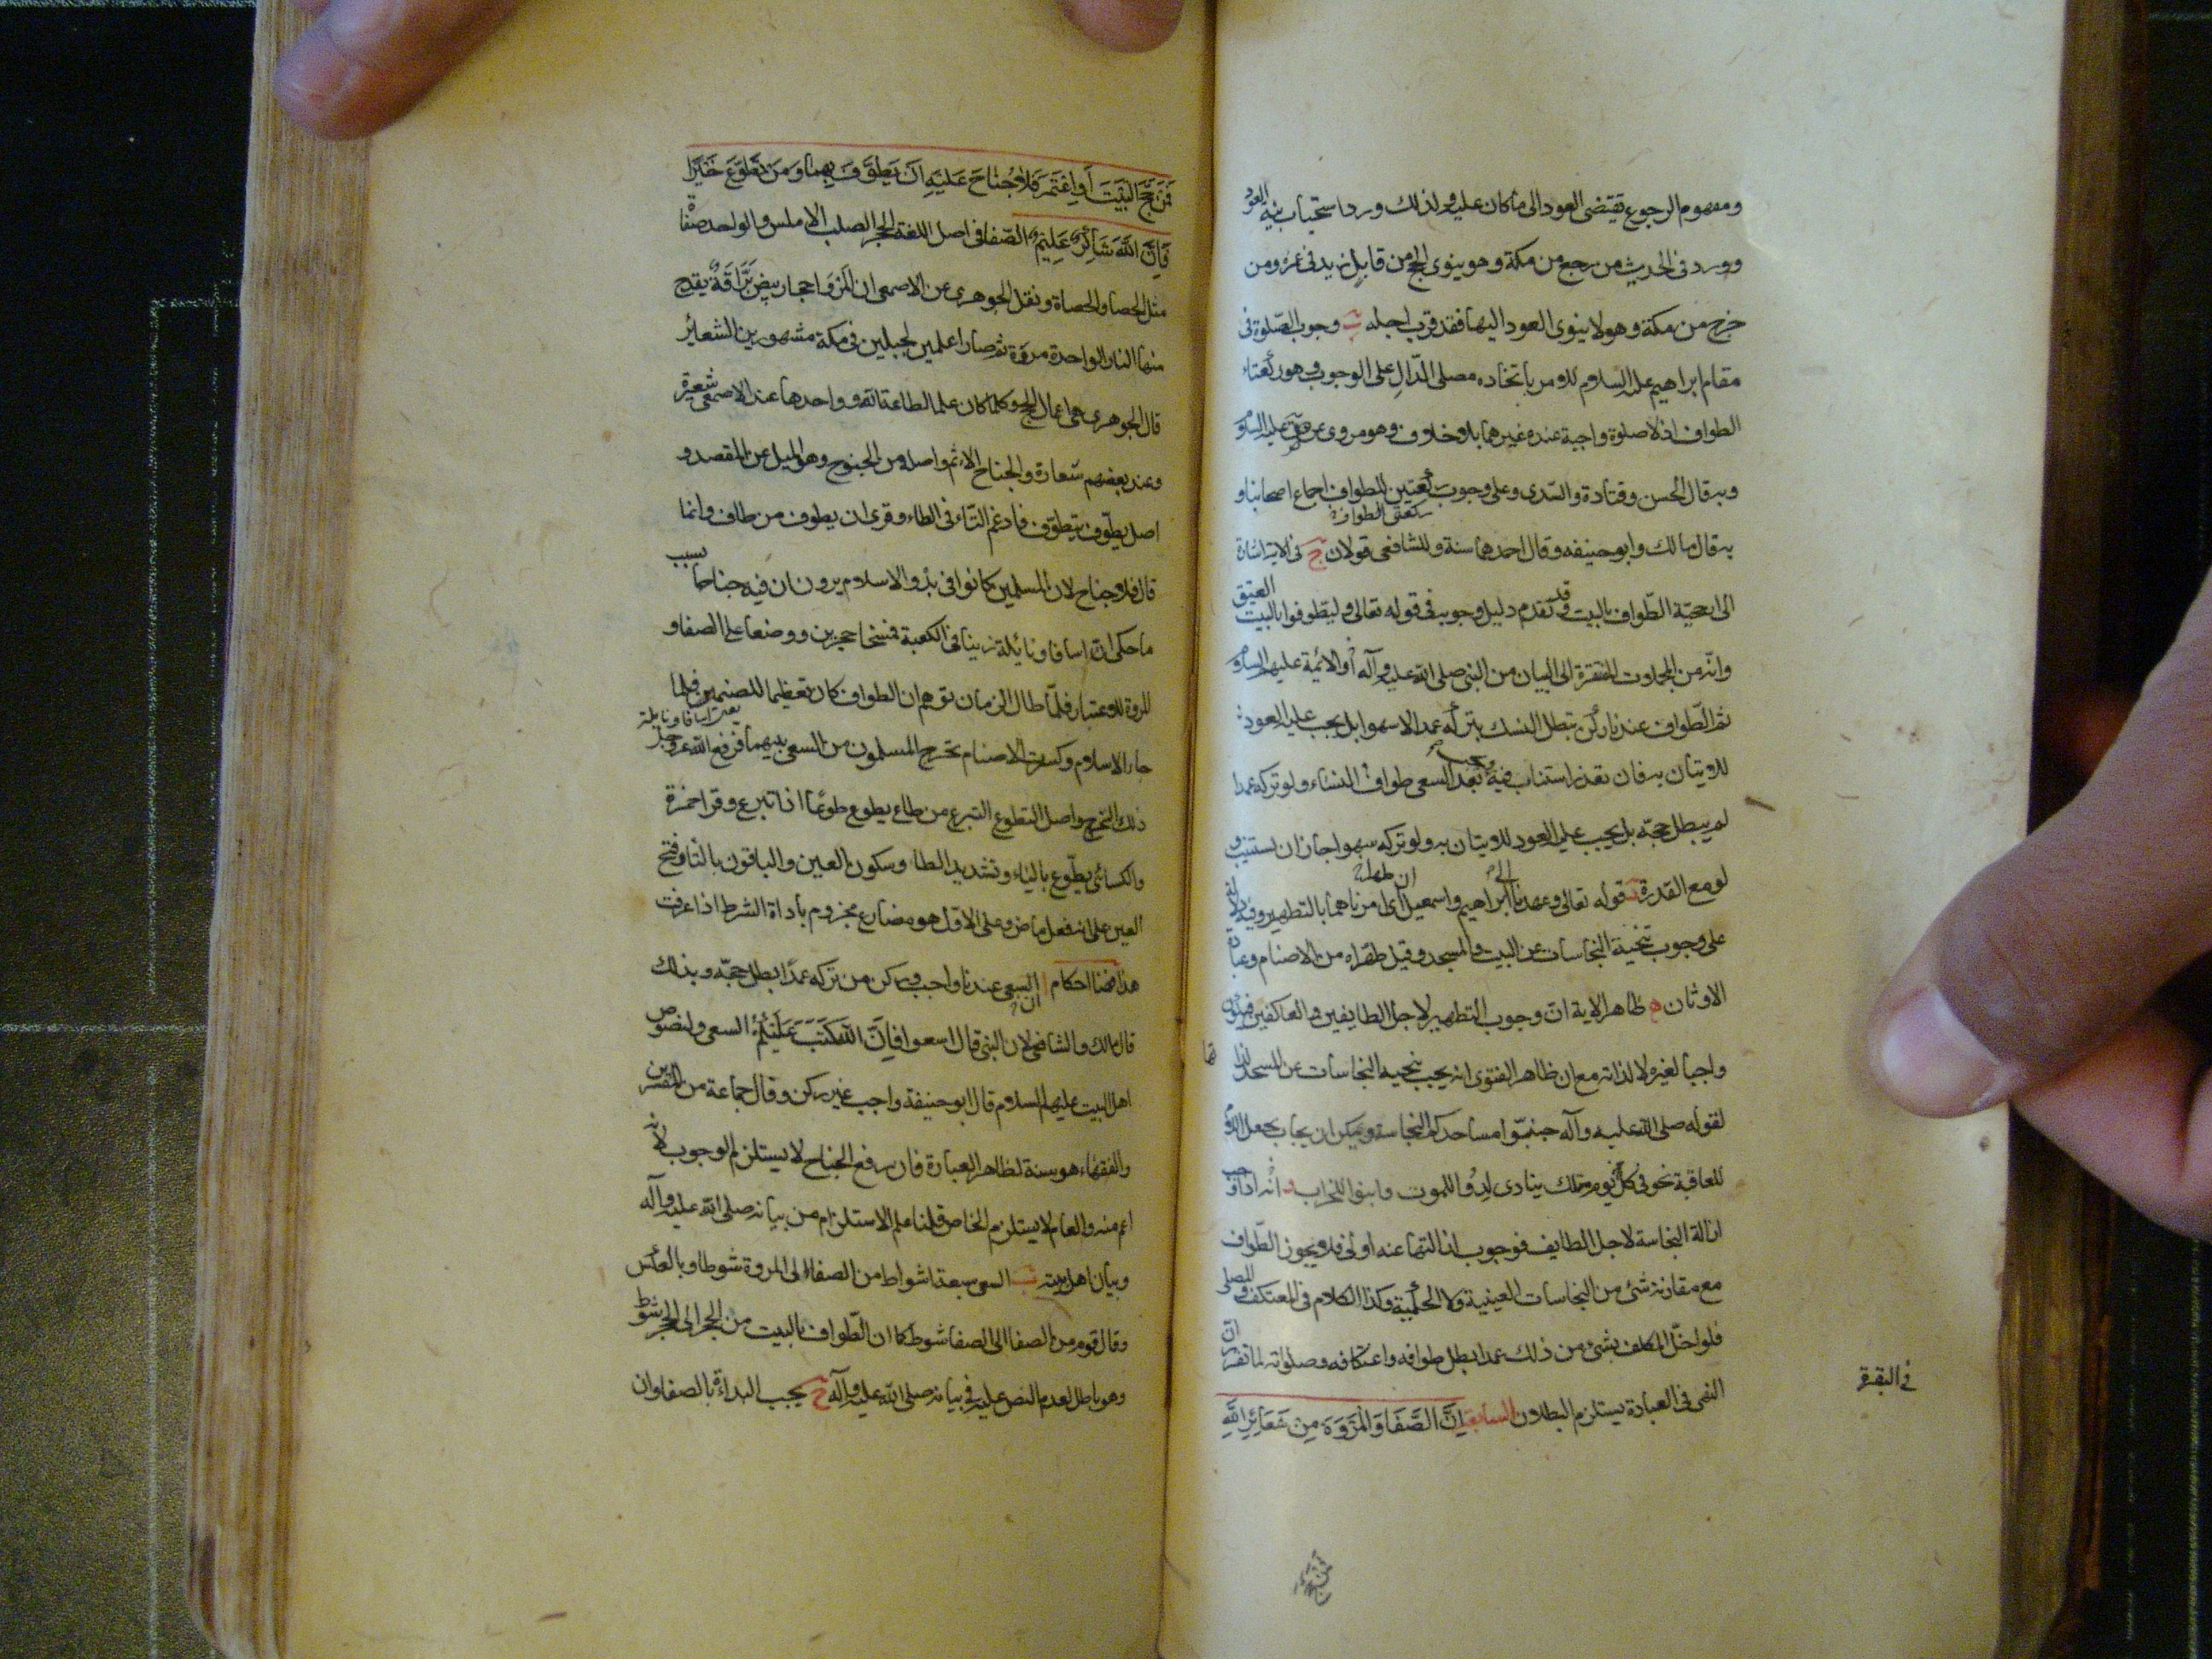 ومفهوم الرجوع يقتضى العود الى ما كان عليه ولذلك ورد استحباب نية العود
وورد فى الحديث من رجع من مكة وهو ينوى الحج من قابل زيد فى عمره ومن
خرج من مكة وهو لا ينوى العود اليها فقد قرب اجله ب وجوب الصلوة فى
مقام ابراهيم عليه السلام للامر باتخاذه مصلى الدال على الوجوب وهو ركعتا
الطواف اذ لا صلوة واجبة عنده غيرهما بلا خلاف وهو مروى عن عليه السلام
وبه قال الحسن وقتادة والسدى وعلى وجوب ركعتين للطواف اجماع اصحابنا و
ركعتى الطواف
به قال مالك وابو حنيفه وقال احمد هما سنة وللشافعى قولان ج فى الاية اشارة
الى رجحية الطواف بالبيت وقد تقدم دليل وجوبه فى قوله تعالى وليطوفوا بالبيت العتيق
وانه من المجملات المفتقرة الى البيان من النبى صلى الله عليه وآله او الائمة عليهم السلام
ثم الطواف عندنا ركن يبطل النسك بتركه عمدا لا سهوا بل يجب عليه العود
للاتيان به فان تعذر استناب فيه ويجب بعد السعى طواف النساء ولو تركه عمدا
لم يبطل حجه بل يجب عليه العود للاتيان به ولو تركه سهوا جاز ان يستنيب و
لو مع القدرة قوله تعالى وعهدنا الى ابراهيم واسمعيل ان طهرا اى امرناهما بالتطهير وفيه دلالة
على وجوب تنحية النجاسات عن البيت والمسجد وقيل طهراه من الاصنام وعبادة
الاوثان ه ظاهر الاية ان وجوب التطهير لاجل الطايفين والعاكفين فيكون
واجبا لغيره لا لذاته مع ان ظاهر الفتوى انه يجب تنحية النجاسات عن المسجد لذاتها
لقوله صلى الله عليه وآله جنبوا مساجدكم النجاسة ويمكن ان يجاب بجعل اللام
للعاقبة نحو فى كل يوم ملك ينادى لدوا للموت وابنوا للخراب و انه اذا وجب
ازالة النجاسة لاجل الطايف فوجوب ازالتها عنه اولى فلا يجوز الطواف
مع مقارنة شئ من النجاسات العينية ولا الحكمية وكذا الكلام فى المعتكف والمصلى
فلو اخل المكلف بشئ من ذلك عمدا بطل طوافه واعتكافه وصلواته لما تقرر ان
النهى فى العبادة يستلزم البطلان السابعة إِنَّ الصَّفَا وَالْمَرْوَةَ مِنْ شَعَائِرِ اللَّهِ
فى البقرة
فَمَنْ حَجَّ الْبَيْتَ أَوِ اعْتَمَرَ فَلَا جُنَاحَ عَلَيْهِ أَنْ يَطَّوَّفَ بِهِمَا وَمَنْ تَطَوَّعَ خَيْرًا
فَإِنَّ اللَّهَ شَاكِرٌ عَلِيمٌ الصفا فى اصل اللغة الحجر الصلب الاملس والواحد صفاة
مثل الحصا والحصاة ونقل الجوهرى عن الاصمعى ان المرو احجار بيض براقة يقدح
منها النار الواحدة مروة ثم صارا علمين لجبلين فى مكة مشهورين الشعاير
قال الجوهرى هى اعمال الحج وكلما كان علما لطاعة الله وواحدها عند الاصمعى شعيرة
وعند بعضهم شعارة والجناح الاثم واصله من الجنوح وهو الميل عن المقصد و
اصل يطوف يتطوف فادغم التاء فى الطاء وقرئ ان يطوف من طاف وانما
قال فلا جناح لان المسلمين كانوا فى بدو الاسلام يرون ان فيه جناحا بسبب
ما حكى ان اسافا ونايلة زنيا فى الكعبة فمسخا حجرين ووضعا على الصفا و
المروة للاعتبار فلما طال الزمان توهم ان الطواف كان تعظيما للصنمين فلما
يعنى اسافا ونايلة
جاء الاسلام وكسرت الاصنام تحرج المسلمون من السعى بينهما فرفع الله عز وجل
ذلك التحرج واصل التطوع التبرع من طاع يطوع طوعا اذا تبرع وقرا حمزة
والكسائى يطوع بالياء وتشديد الطاء وسكون العين والباقون بالتاء وفتح
العين على انه فعل ماض وعلى الاول هو مضارع مجزوم باداة الشرط اذا عرفت
هذا فهنا احكام ا السعى عندنا واجب وركن من تركه عمدا بطل حجه وبذلك
قال مالك والشافعى لان النبى قال اسعوا فَإِنَّ اللَّهَ كَتَبَ عَلَيْكُمُ السعى ولنصوص
اهل البيت عليهم السلام قال ابو حنيفة واجب غير ركن وقال جماعة من المفسرين
والفقهاء هو سنة لظاهر العبارة فان رفع الجناح لا يستلزم الوجوب لانه
اعم منه والعام لا يستلزم الخاص قلنا علم الاستلزام من بيانه صلى الله عليه وآله
وبيان اهل بيته ب السعى سبعة اشواط من الصفا الى المروة شوطا وبالعكس
وقال قوم من الصفا الى الصفا شوط كما ان الطواف بالبيت من الحجر الى الحجر شوط
وهو باطل لعدم النص عليه فى بيانه صلى الله عليه وآله ج يجب البداءة بالصفا وان